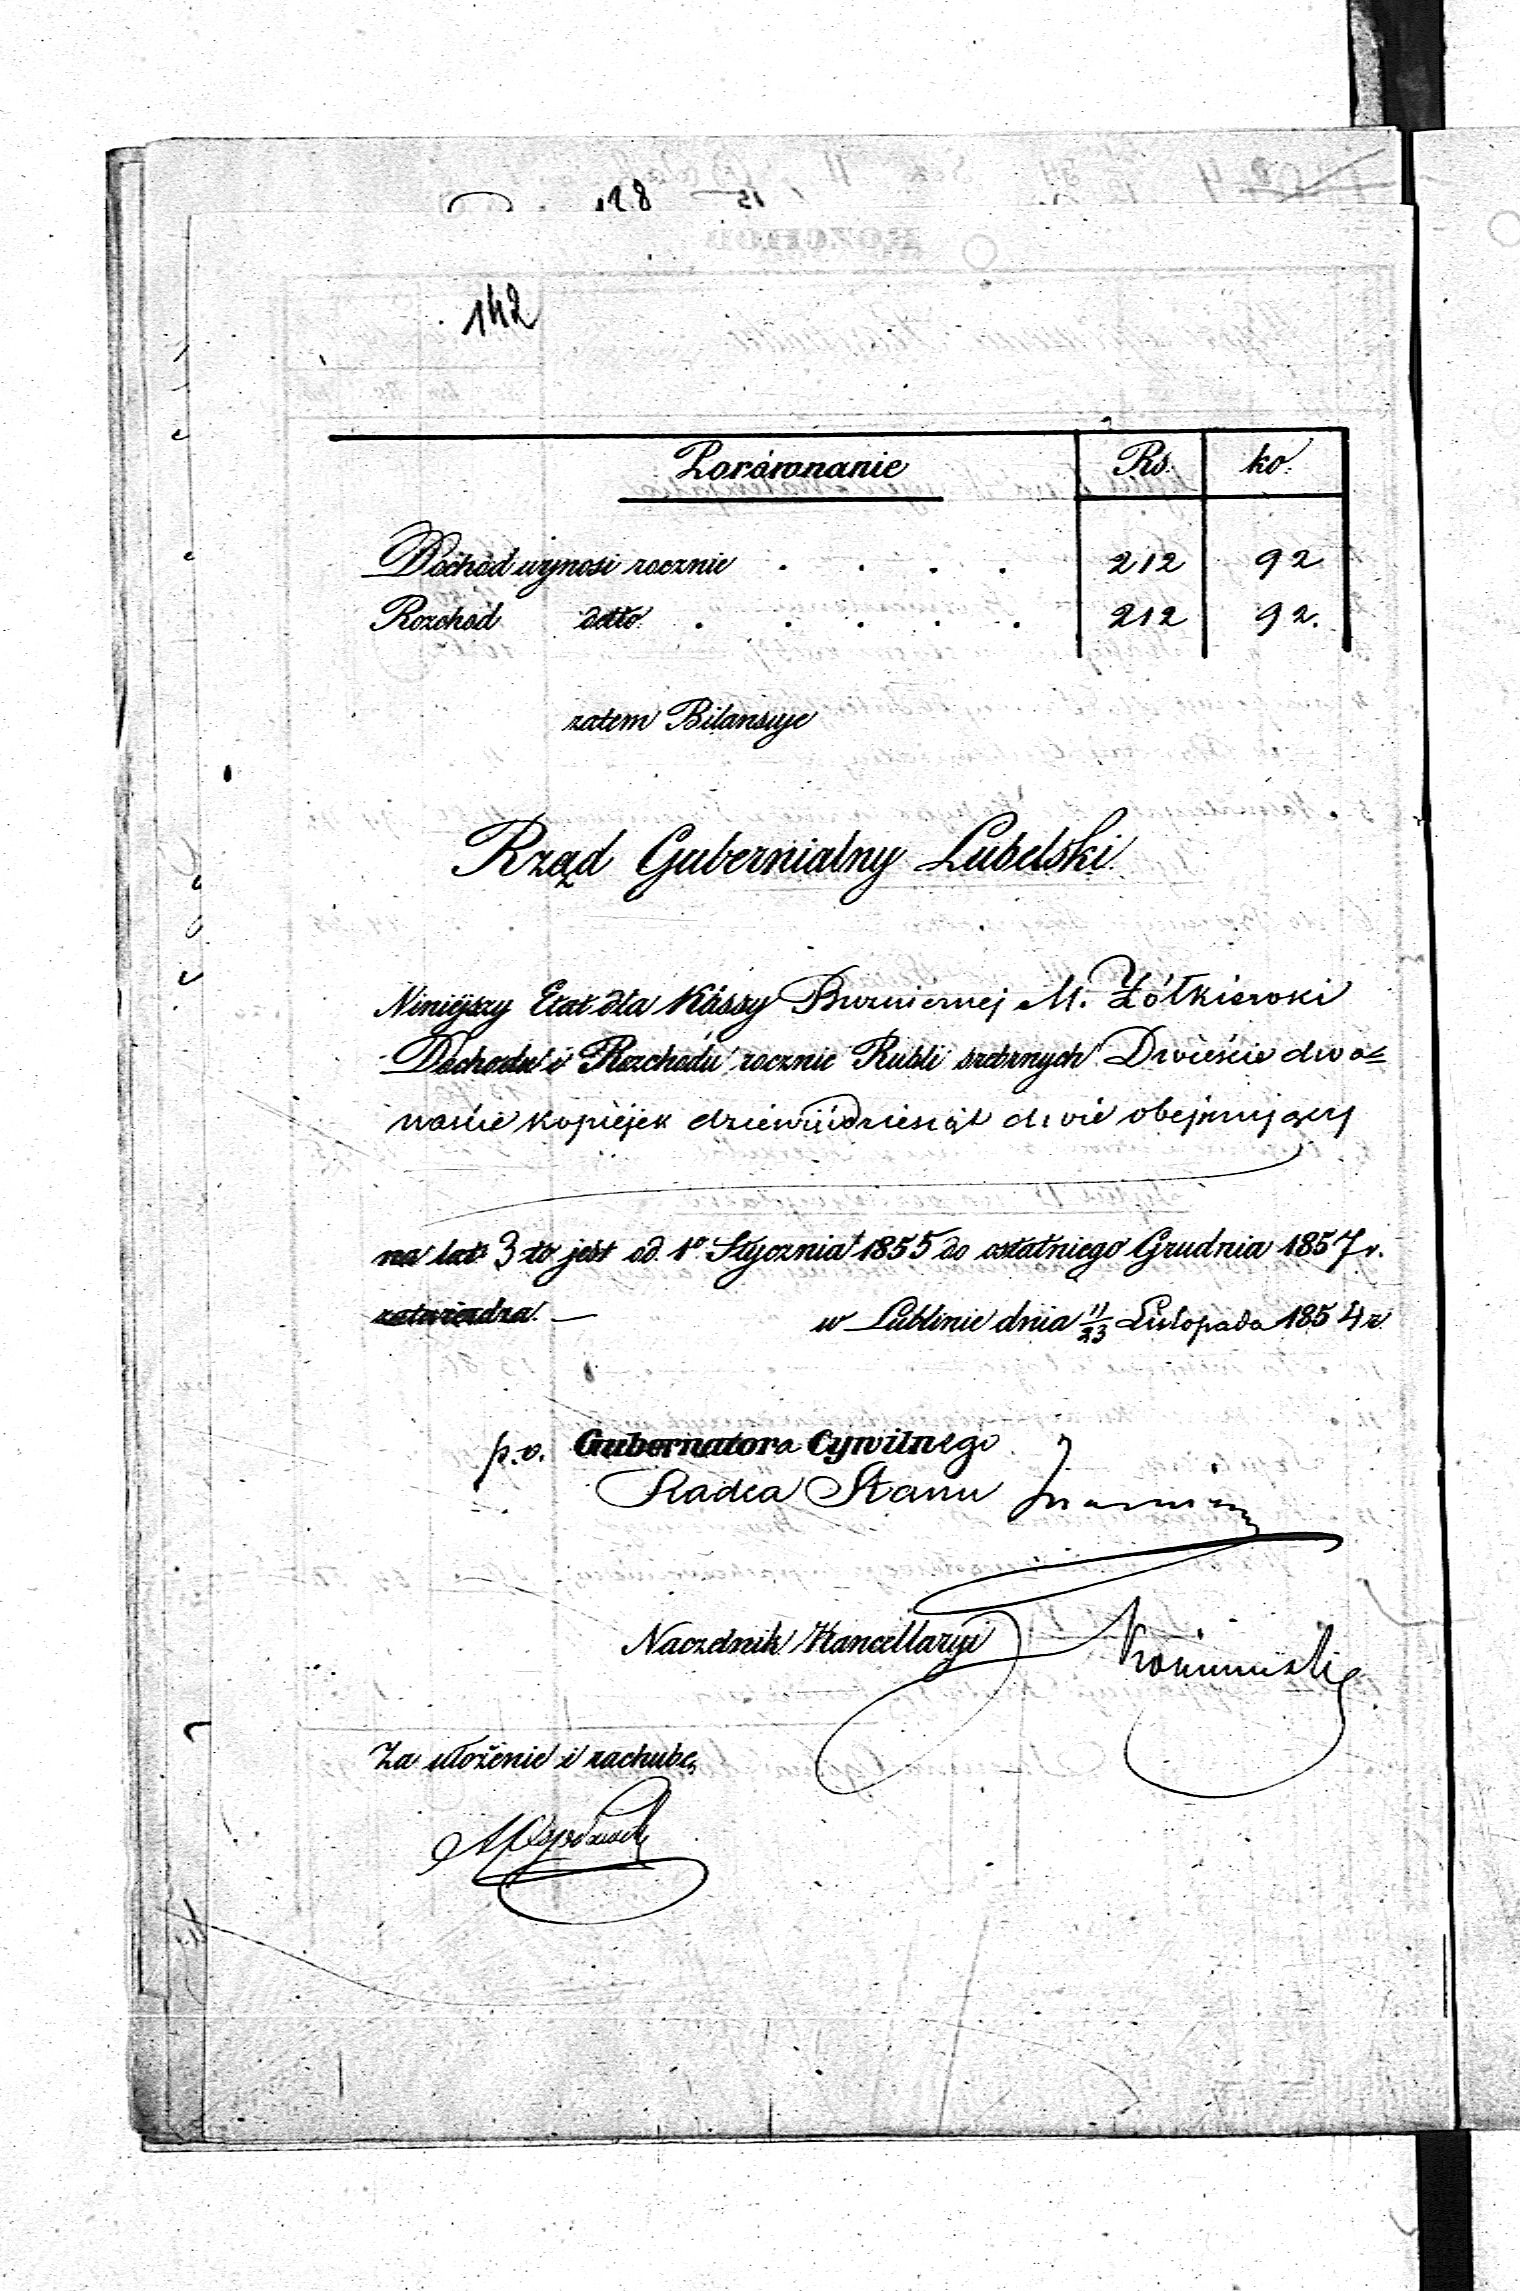 128
142
Porównanie Rs. ko.
Dochód wynosi rocznie . . . . 212 92
Rozchód detto . . . . . 212 92.
zatem Bilansuje
Rząd Gubernialny Lubelski.
Niniejszy Etat dla Kassy Bużnicznej M. Żółkiewki
Dochodu i Rozchodu rocznie Rubli srebrnych Dwieście dwa=
naście kopiejek dziewięćdziesiąt dwie obejmujący
na lat 3 to jest od 1o Stycznia 1855 do ostatniego Grudnia 1857 r.
zatwierdza. — w Lublinie dnia 11/23 Listopada 1854 r.
p.o. Gubernatora Cywilnego
Radca Stanu
Naczelnik Kancellaryi
Za ułożenie i rachubę